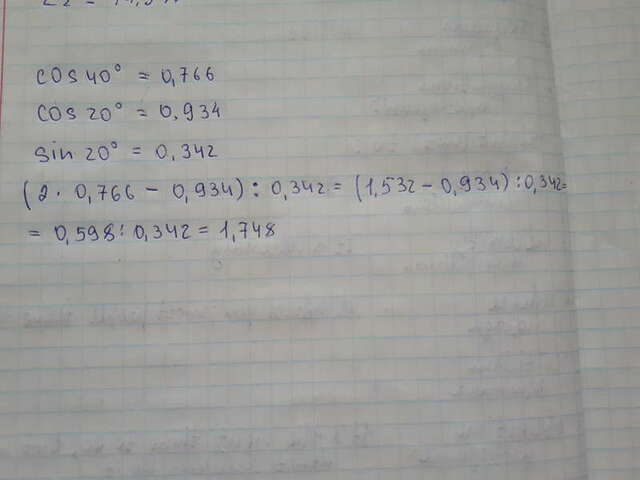 cos 40° = 0,766
cos 20° = 0,934
sin 20° = 0,342
(2 · 0,766 – 0,934) : 0,342 = (1,532 – 0,934) : 0,342=
= 0,598 : 0,342 = 1,748